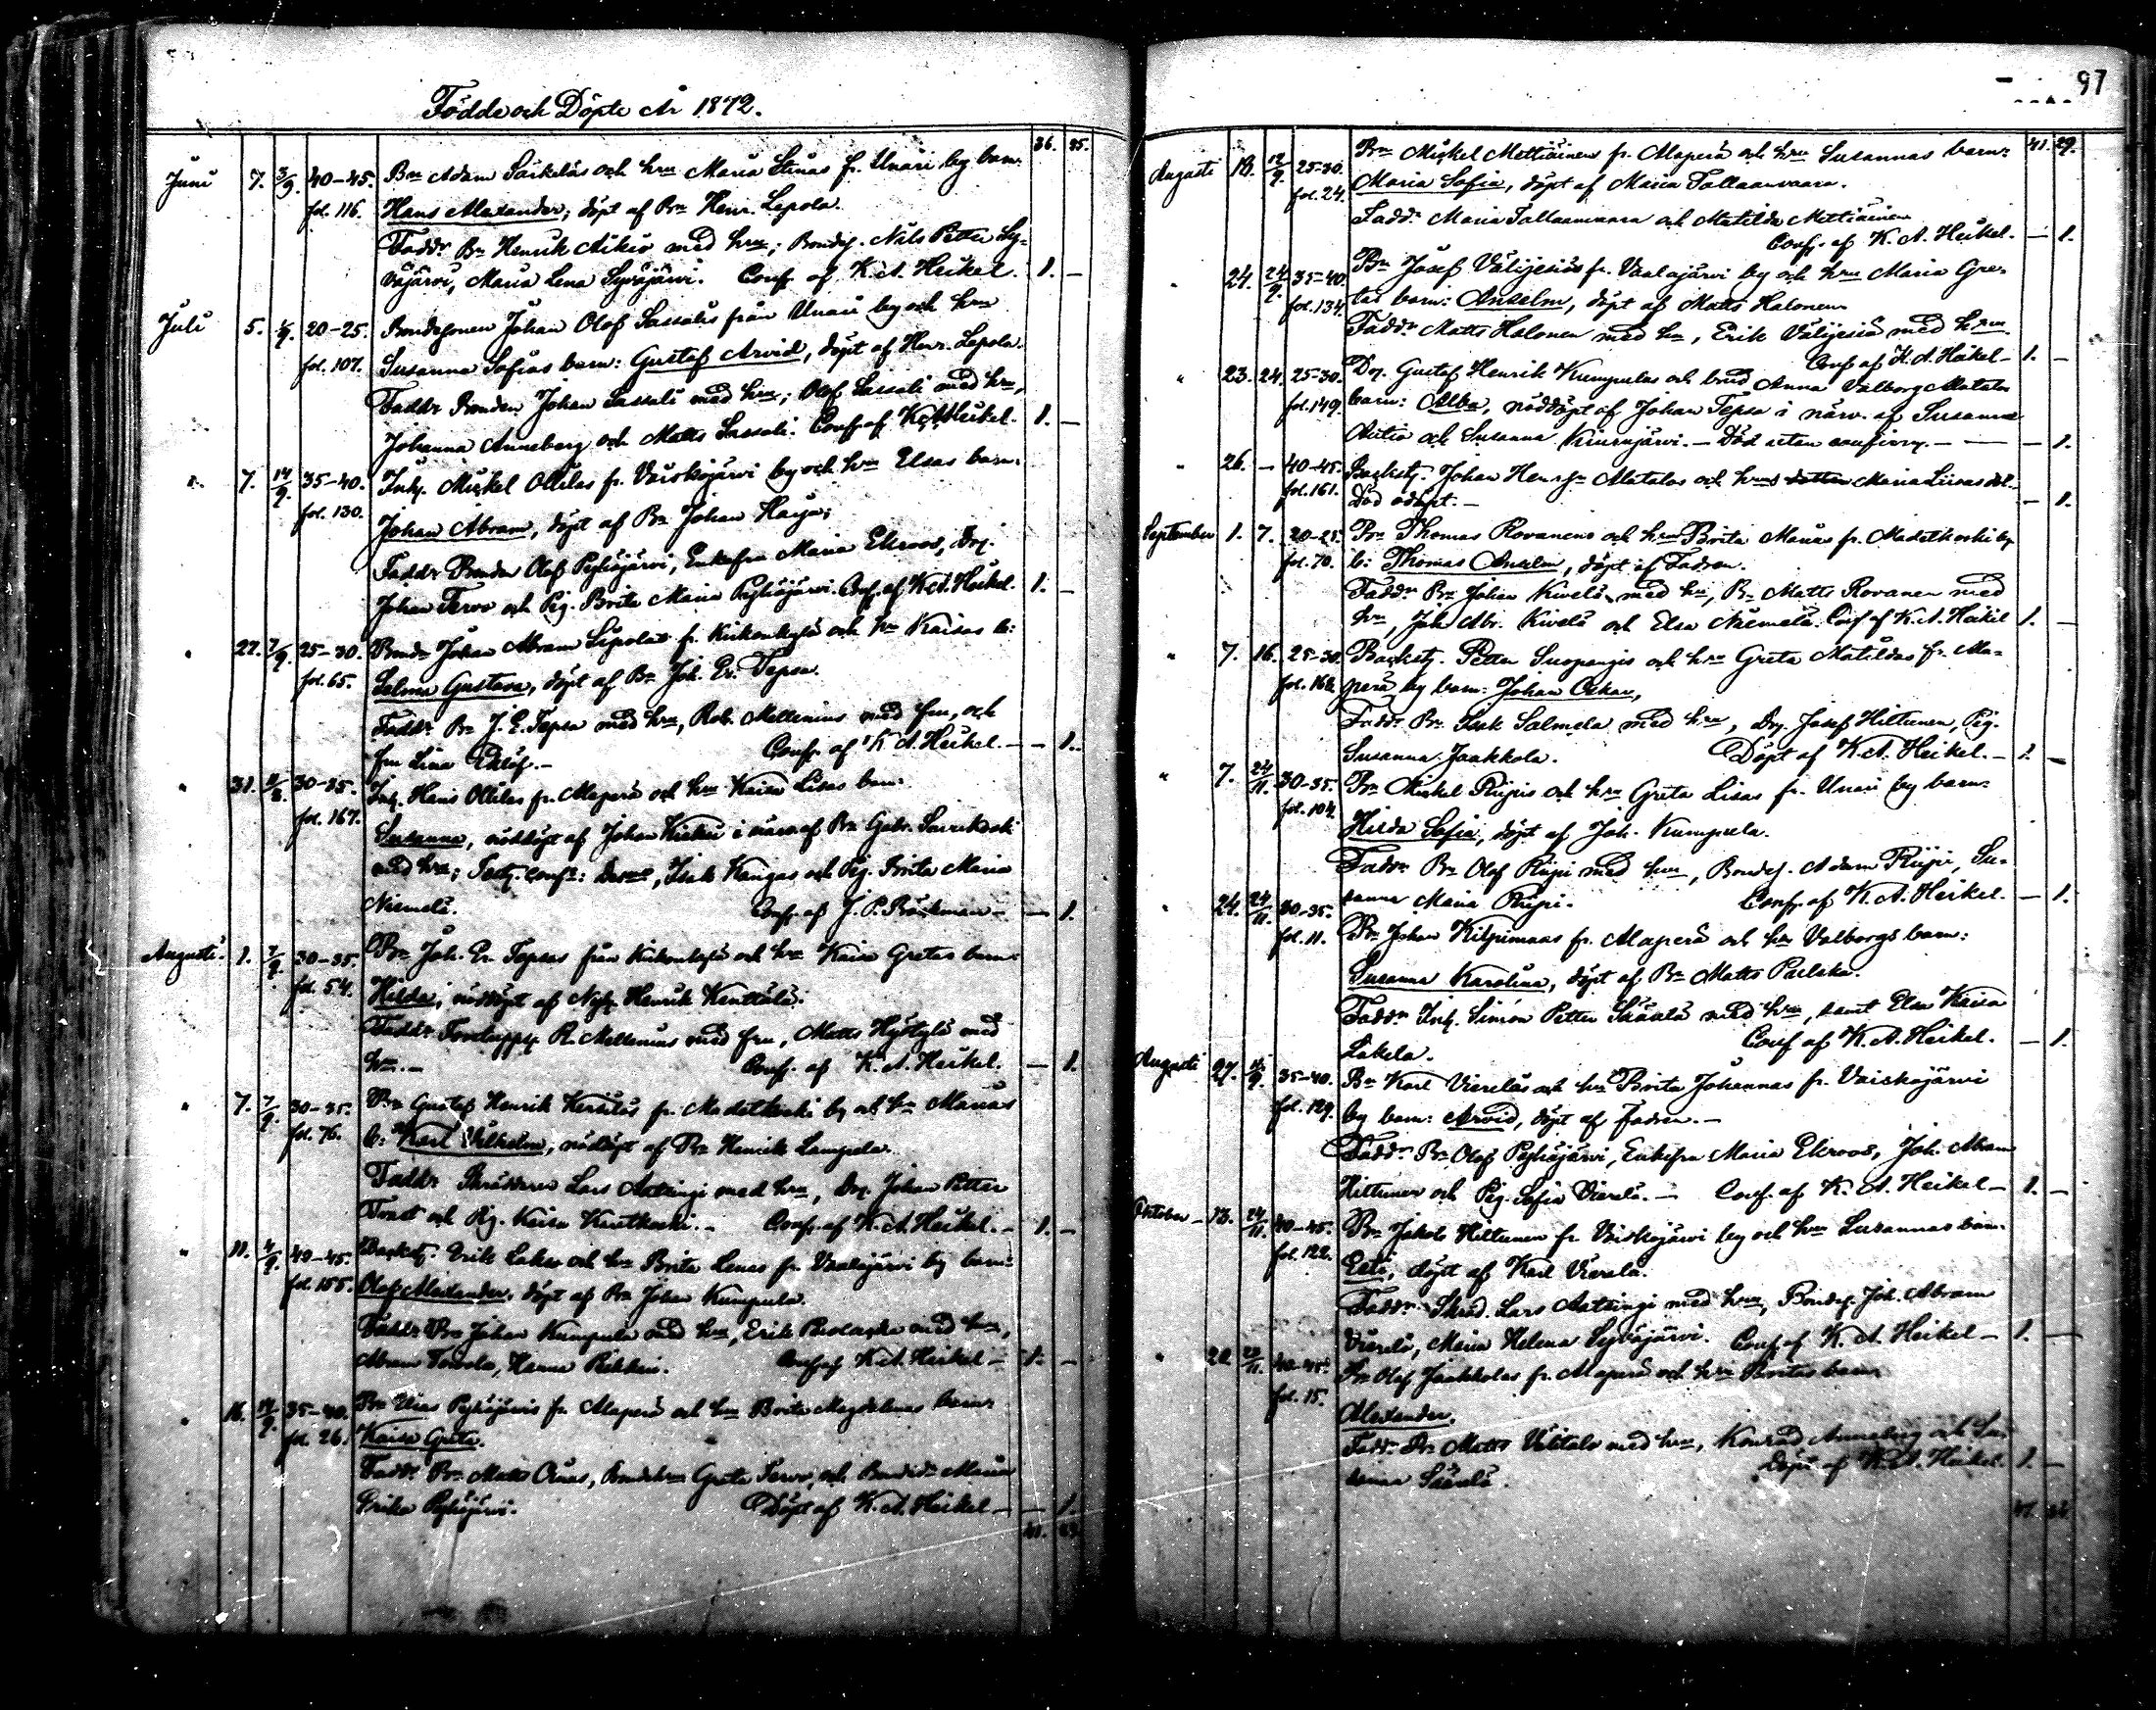 Födde och Döpte År 1872.
36. 25.
Juni 7. 3/9. 40-45. Bn Adam Säikeläs och hm Maria Stinas fr. Unari by barn:
fol. 116. Hans Alexander, döpt af Bn Henr. Lepola.
Faddr Bn Henrik Aikio med hm; Bondes. Nils Petter Sy-
väjärvi, Maria Lena Syväjärvi. Conf. af K. A. Heikel. 1. –
Juli 5. 20-25. Bondesonen Johan Olof Sassalis från Unari by och hm
fol. 107. Susanna Sofias barn: Gustaf Arvid, döpt af Henr. Lepola.
Faddr Bonden Johan Sassali med hm; Olof Sassali med hm,
Johanna Anneberg och Matts Sassali. Conf. af K. A. Heikel. 1. –
" 7. 14/9. 35-40. Inh. Mickel Ollilas fr. Vaiskojärvi by och hm Elsas barn:
fol. 130. Johan Abram, döpt af Bn Johan Harju;
Faddr Bonden Olof Pyhäjärvi, Enkefru Maria Ekroos, Drg.
Johan Tervo och Pig. Brita Maria Pyhäjärvi. Conf. af K. A. Heikel. 1. –
" 22. 7/9. 25-30. Bond. Johan Abram Lepolas fr. Kirkonkylä och hm Kaisas b:
fol. 65. Selma Gustava, döpt af Bn Joh. Er. Tepsa.
Faddr Bn J. E. Tepsa med hm, Rob. Mellenius med fru, och
fru Lina Eklöf. – Conf. af K. A. Heikel. – – 1.
" 31. 30-35. Inh. Hans Ollilas fr. Alaperä och hm Kaisa Lisas barn:
fol. 167. Susanna, nöddöpt af Johan i närv. af Bn Gabr. Saurikoski
med hm; conf: , Isak Kangas och Pig. Brita Maria
Niemelä. Conf. af J. P. – – 1.
Augusti. 1. 7/9. 30-35. Bn Joh. Er. Tepsas från Kirkonkylä och hm Kaisa Gretas barn:
fol. 54. Hilda, nöddöpt af Henrik Kenttälä.
Faddr R. Mellenius med fru, Matts Hyötylä med
hm. – Conf. af K. A. Heikel. – 1.
" 7. 7/9. 30-35. Bn Gustaf Henrik fr. Madetkoski by och hm Marias
fol. 76. b: Karl Vilhelm, nöddöpt af Bn Henrik Lampela.
Faddr Skräddaren Lars Aatsingi med hm, Drg. Johan Petter
och Pig. Kaisa . – Conf. af K. A. Heikel. – 1. –
" 11. 40-45. Backstg. Erik Lakso och hm Brita Lenas fr. Vaalajärvi by barn:
fol. 155. Olof Alexander, döpt af Bn Johan Kumpula.
Faddr Bn Johan Kumpula med hm, Erik med hm,
Abram , Hanna . Conf. af K. A. Heikel – 1. –
" 16. 14/9. 35-40. Bn Elias Pyhäjärvis fr. Alaperä och hm Brita Magdalenas barn:
fol. 26. Kaisa Greta.
Faddr Bn Matts , Bondehm Greta Tervo, och Bonded. Maria
Erika Pyhäjärvi. Döpt af K. A. Heikel. – – 1.
41. 29.
97
41. 29.
Augusti 18. 12/9. 25-30. Bn Mickel Mettiäinens fr. Alaperä och hm Susannas barn:
fol. 24. Maria Sofia, döpt af Maria Tallaanvaara.
Faddr Maria Tallaanvaara och Matilda Mettiäinen
Conf. af K. A. Heikel. – 1.
" 24. 24/9. 35-40. Bn Josef Välijesiäs fr. Vaalajärvi by och hm Maria Gre-
fol. 134. tas barn: Anselm, döpt af Matts Halonen
Faddr Matts Halonen med hm, Erik Välijesiä med hm.
Conf. af K. A. Heikel – 1. –
" 23. 24. 25-30. Drg. Gustaf Henrik Kumpulas och brud Anna Valborg Matalas
fol. 149. barn: Alba, nöddöpt af Johan Tepsa i närv. af Susanna
Autio och Susanna Kiurujärvi. – Död utan confirm. – – – 1.
" 26. – 40-45. Backstg. Johan Henr. Matalas och hms Maria Lisas dot.
fol. 161. Död odöpt. – – 1.
September 1. 7. 20-25. Bn Thomas Rovanens och hm Brita Marias fr. Madetkoski by
fol. 70. b: Thomas Anselm, döpt af Fadren.
Faddr Bn Johan Kivelä med hm, Bn Matts Rovanen med
hm, Joh. Abr. Kivelä och Elsa Niemelä. Conf. af K. A. Heikel 1. –
" 7. 16. 25-30. Backstg. Petter Suopangis och hm Greta Matildas fr. Ala-
fol. 166. perä by barn: Johan Oskar,
Faddr Bn Isak Salmela med hm, Drg. Josef Hiltunen, Pig.
Susanna Jaakkola. Döpt af K. A. Heikel. – 1. –
" 7. 24/11. 30-35. Bn Mickel Riipis och hm Greta Lisas fr. Unari by barn:
fol. 104. Hilda Sofia, döpt af Joh. Kumpula.
Faddr Bn Olof Riipi med hm, Bondes. Adam Riipi, Su-
sanna Maria Riipi. Conf. af K. A. Heikel. – 1.
" 24. 24/11. 30-35. Bn Johan Kitzimaas fr. Alaperä och hm Valborgs barn:
fol. 11. Susanna Karolina, döpt af Bn Matts .
Faddr Inh. Simon Petter Säärelä med hm, samt Elsa Kaisa
Lakela. Conf. af K. A. Heikel. – 1.
Augusti 27. 35-40. Bn Karl Viereläs och hm Brita Johannas fr. Vaiskojärvi
fol. 129. by barn: Arvid, döpt af Fadren. –
Faddr Bn Olof Pyhäjärvi, Enkefru Maria Ekroos, Joh. Abram
Hiltunen och Pig. Sofia Vierelä. – Conf. af K. A. Heikel – 1. –
Oktober – 13. 24/11. 40-45. Bn Jakob Hiltunen fr. Vaiskojärvi by och hm Susannas barn:
fol. 122. , döpt af Karl Vierelä.
Faddr Skräd. Lars Aatsingi med hm, Bondes. Joh. Abram
Vierelä, Maria Helena Syväjärvi. Conf. af K. A. Heikel – 1. –
" 22. 40-45. Bn Olof Jaakkolas fr. Alaperä och hm Britas barn:
fol. 15. Alexander.
Faddr Bn Matts Välitalo med hm, Konrad Anneberg och Su-
sanna Säärelä. Döpt af K. A. Heikel. 1. –